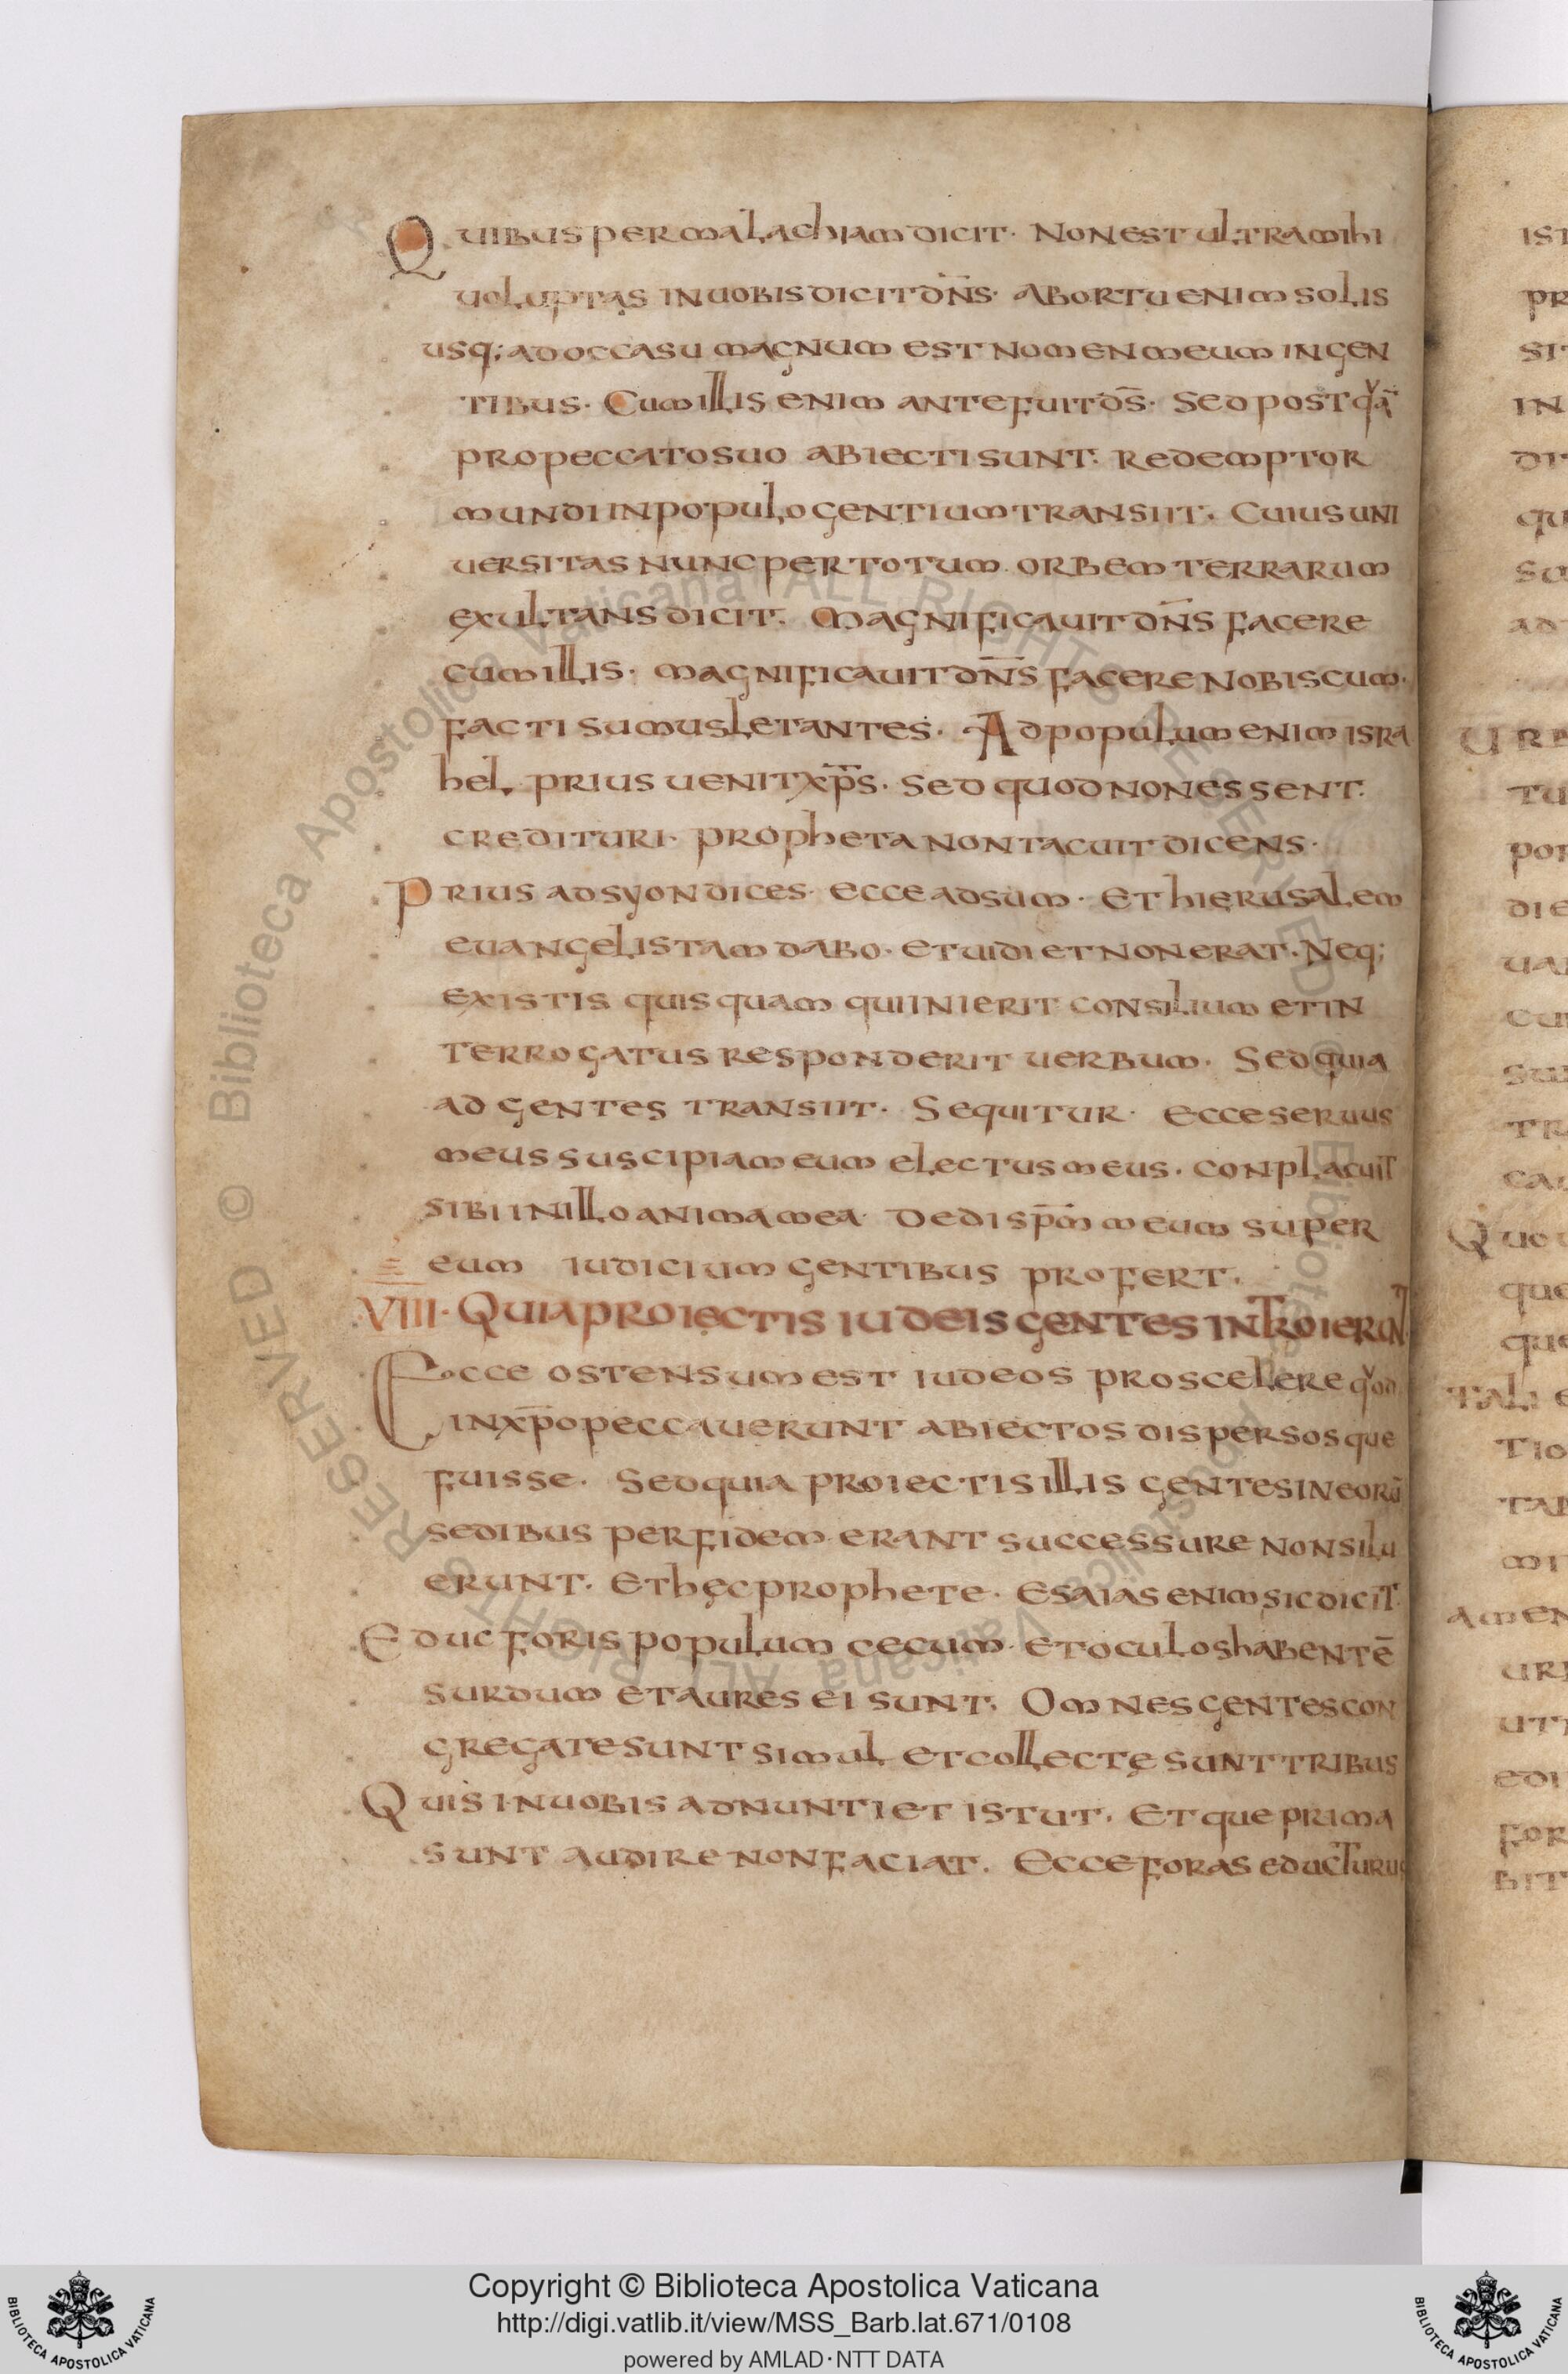 Quibus per malachiam dicit· Non est ultra mihi
uoluptas in uobis dicit dn̄s· Ab ortu enim solis
usq; ad occasu magnum est nomen meum in gen
tibus· Cum illis enim ante fuit ds̄· Sed post qͮā
pro peccato suo abiecti sunt· Redemptor
mundi in populo gentium transiit· Cuius uni
uersitas nunc per totum orbem terrarum
exultans dicit· Magnificauit dn̄s facere
cum illis· magnificauit dn̄s facere nobiscum·
facti sumus letantes· Ad populum enim isra
hel prius uenit xp̄s· sed quod non essent
credituri· propheta non tacuit dicens·
Prius ad syon dices· ecce adsum· et hierusalem
euangelistam dabo· et uidi et non erat· Neq;
ex istis quisquam qui inierit consilium et in
terrogatus responderit uerbum· Sed quia
ad gentes transiit· Sequitur· ecce seruus
meus suscipiam eum electus meus· conplacuit
sibi in illo anima mea· Dedi sp̄m meum super
eum iudicium gentibus profert·
VIII· Quia proiectis iudeis gentes introierunt
Ecce ostensum est iudeos pro scelere qͮod
in xp̄o peccauerunt abiectos dispersosque
fuisse· Sed quia proiectis illis gentes in eorū
sedibus per fidem erant successure non silu
erunt· Et hęc prophete· Esaias enim sic dicit·
Educ foris populum cecum· et oculos habentē
surdum et aures ei sunt· Omnes gentes con
gregate sunt simul et collectę sunt tribus
Quis in uobis adnuntiet istut· Et que prima
sunt audire non faciat· Ecce foras educturus
IST
PR
SI
IN
DI
QU
SC
AD
UR
TU
POR
DIE
UA
CU
SU
TR
CAU
Quo
que
que
TALI
TIO
TAB
MI
AMEN
URB
UT
EDI
FOR
BIT
© Biblioteca Apostolica Vaticana ALL RIGHTS RESERVED
© Biblioteca Apostolica Vaticana ALL RIGHTS RESERVED
BIBLIOTECA APOSTOLICA VATICANA
Copyright © Biblioteca Apostolica Vaticana
http://digi.vatlib.it/view/MSS_Barb.lat.671/0108
powered by AMLAD·NTT DATA
BIBLIOTECA APOSTOLICA VATICANA